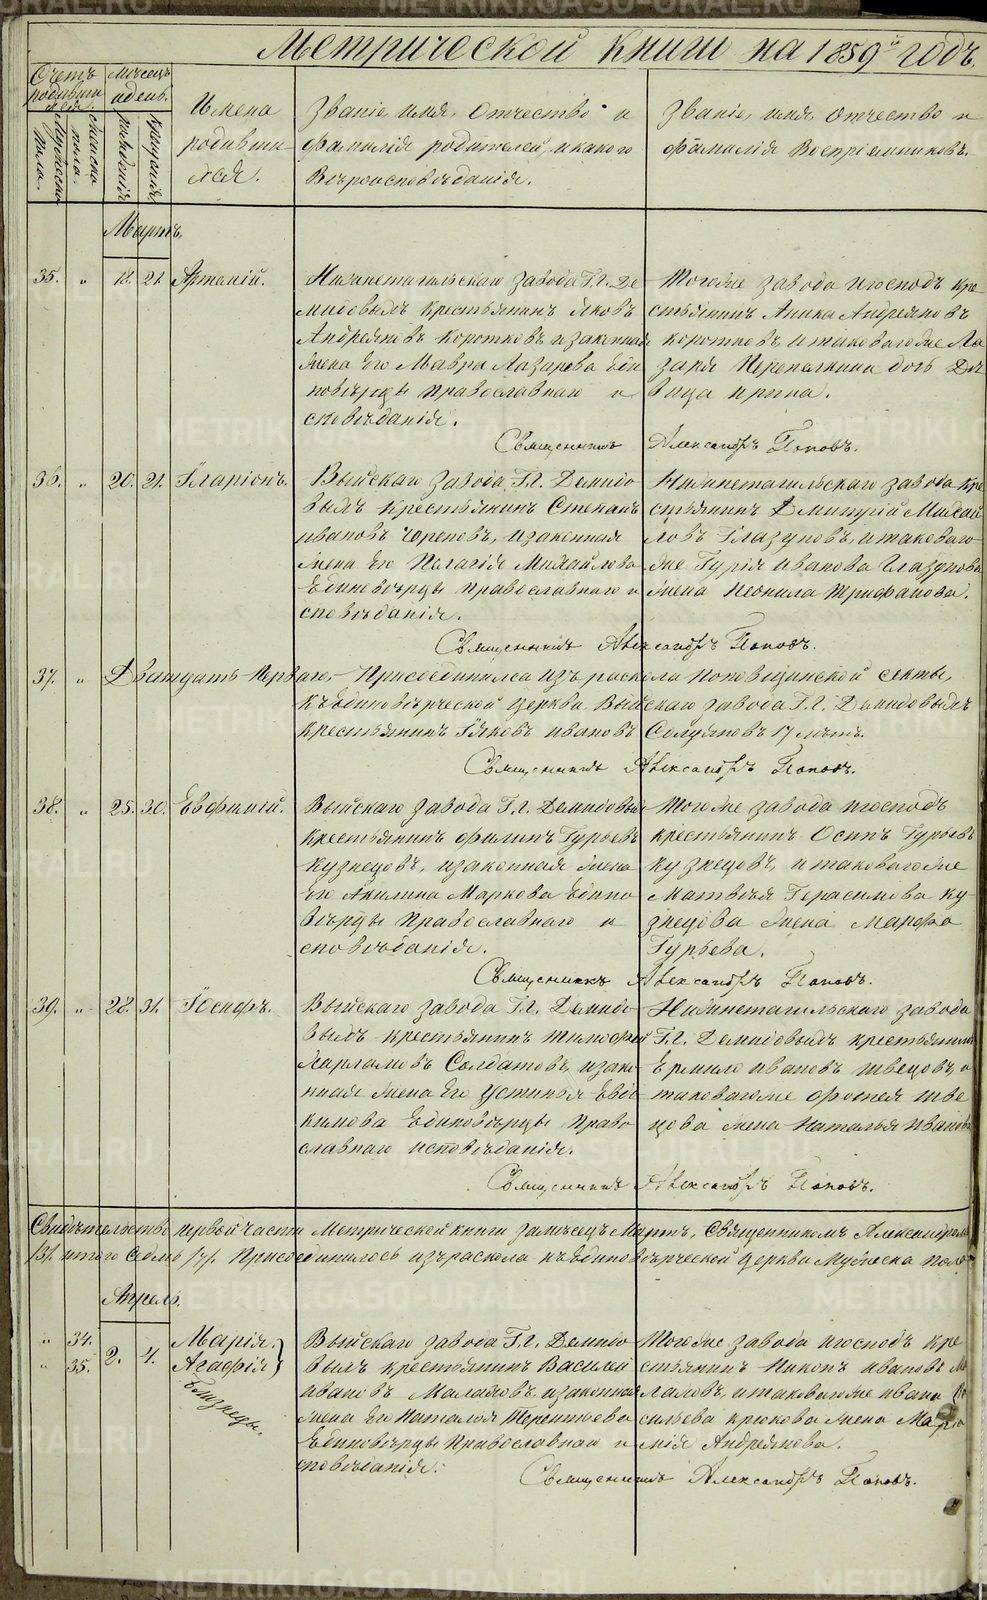 Метрической книги на 1859й годъ.
Счетъ родившихся.
Мѣсецъ и день.
Имена родивши хся.
Званіе, имя, отчество и
фамилія родителей, и какого
вѣроисповѣданія.
Званіе, имя, отчество и
фамилія воспріемниковъ.
Мужеска пола.
Женска пола.
рожденія
крещенія
Мартъ.
35. „ 18. 21. Артемій.
Нижнетагильскаго завода Г.г. Де-
мидовыхъ крестьянинъ Яковъ
Андреяновъ Коротковъ и законная
жена его Мавра Лазарева еди
новѣрцы православнаго и
сповѣданія.
Тогоже завода и господъ кре
стьянинъ Аника Андреяновъ
Коротковъ, и таковагоже Ла
заря Перепелкина дочь дѣ
вица Ирина.
Священникъ Александръ Поповъ.
36. „ 20. 21. Іларіонъ.
Выйскаго завода Г.г. Демидо
выхъ крестьянинъ Стефанъ
Ивановъ, и законная
жена его Пелагія Михайлова
единовѣрцы православнаго и
сповѣданія.
Нижнетагильскаго завода кре
стьянинъ Димитрій Михай
ловъ Глазуновъ, и таковаго
же Гурія Иванова Глазунова
жена Неонила Трифанова.
Священникъ Александръ Поповъ.
37. „ Двадцать перваго, Присоединился изъ раскола поповщинской секты,
къ единовѣрческой церкви Выйскаго завода Г.г. Демидовыхъ
крестьянинъ Іяковъ Ивановъ 17 лѣтъ.
Священникъ Александръ Поповъ.
38. „ 25. 30. Евфимій.
Выйскаго завода Г.г. Демидовыхъ
крестьянинъ Филипъ Гурьевъ
Кузнецовъ, и законная жена
его Акилина Маркова едино
вѣрцы православнаго и
сповѣданія.
Тогоже завода и господъ
крестьянинъ Осипъ Гурьевъ
Кузнецовъ, и таковагоже
Матвѣя Герасимова Ку
знецова жена Марфа
Гурьева.
Священникъ Александръ Поповъ.
39. „ 28. 31. Іосифъ.
Выйскаго завода Г.г. Демидо
выхъ крестьянинъ Тимофей
Харламовъ Солдатовъ, и зако
нная жена его Устинья Евдо
кимова единовѣрцы право
славнаго исповѣданія.
Нижнетагильскаго завода
Г.г. Демидовыхъ крестьянинъ
Ермило Ивановъ Швецовъ, и
таковагоже Фотея Шве
цова жена Наталья Иванова
Священникъ Александръ Поповъ.
Свидѣтельство первой части Метрической книги за мѣсецъ Мартъ, Священникомъ Александромъ
Присоединилось изъ раскола къ единовѣрческой церкви мужеска пола
Апрель.
„ 34.
„ 35.
2. 4.
Марія.
Агафія
близнецы.
Выйскаго завода Г.г. Демидо
выхъ крестьянинъ Василій
Ивановъ Малаховъ, и законная
жена его Наталья Терентьева
единовѣрцы православнаго и
сповѣданія.
Тогоже завода и господъ кре
стьянинъ Никонъ Ивановъ Ма
лаховъ, и таковагоже Ивана Ва
сильева Крюкова жена Марѳа
Андреянова.
Священникъ Александръ Поповъ.
METRIKI.GASO-URAL.RU